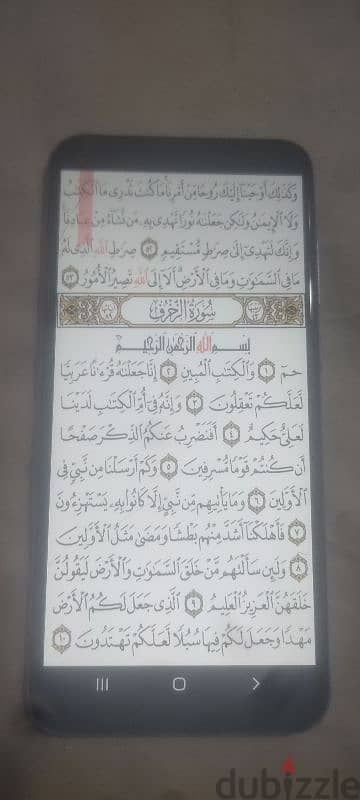 وَكَذَٰلِكَ أَوْحَيْنَا إِلَيْكَ رُوحًا مِّنْ أَمْرِنَا مَا كُنتَ تَدْرِي مَا الْكِتَٰبُ
وَلَا الْإِيمَٰنُ وَلَٰكِن جَعَلْنَٰهُ نُورًا نَّهْدِي بِهِ مَن نَّشَآءُ مِنْ عِبَادِنَا
وَإِنَّكَ لَتَهْدِي إِلَىٰ صِرَٰطٍ مُّسْتَقِيمٍ ٥٢ صِرَٰطِ اللَّهِ الَّذِي لَهُ
مَا فِي السَّمَٰوَٰتِ وَمَا فِي الْأَرْضِ أَلَا إِلَى اللَّهِ تَصِيرُ الْأُمُورُ ٥٣
سُورَةُ الزُّخْرُفِ
بِسْمِ اللَّهِ الرَّحْمَٰنِ الرَّحِيمِ
حمٓ ١ وَالْكِتَٰبِ الْمُبِينِ ٢ إِنَّا جَعَلْنَٰهُ قُرْءَٰنًا عَرَبِيًّا
لَّعَلَّكُمْ تَعْقِلُونَ ٣ وَإِنَّهُ فِي أُمِّ الْكِتَٰبِ لَدَيْنَا
لَعَلِيٌّ حَكِيمٌ ٤ أَفَنَضْرِبُ عَنكُمُ الذِّكْرَ صَفْحًا
أَن كُنتُمْ قَوْمًا مُّسْرِفِينَ ٥ وَكَمْ أَرْسَلْنَا مِن نَّبِيٍّ فِي
الْأَوَّلِينَ ٦ وَمَا يَأْتِيهِم مِّن نَّبِيٍّ إِلَّا كَانُوا بِهِ يَسْتَهْزِءُونَ
٧ فَأَهْلَكْنَا أَشَدَّ مِنْهُم بَطْشًا وَمَضَىٰ مَثَلُ الْأَوَّلِينَ
٨ وَلَئِن سَأَلْتَهُم مَّنْ خَلَقَ السَّمَٰوَٰتِ وَالْأَرْضَ لَيَقُولُنَّ
خَلَقَهُنَّ الْعَزِيزُ الْعَلِيمُ ٩ الَّذِي جَعَلَ لَكُمُ الْأَرْضَ
مَهْدًا وَجَعَلَ لَكُمْ فِيهَا سُبُلًا لَّعَلَّكُمْ تَهْتَدُونَ ١٠
dubizzle